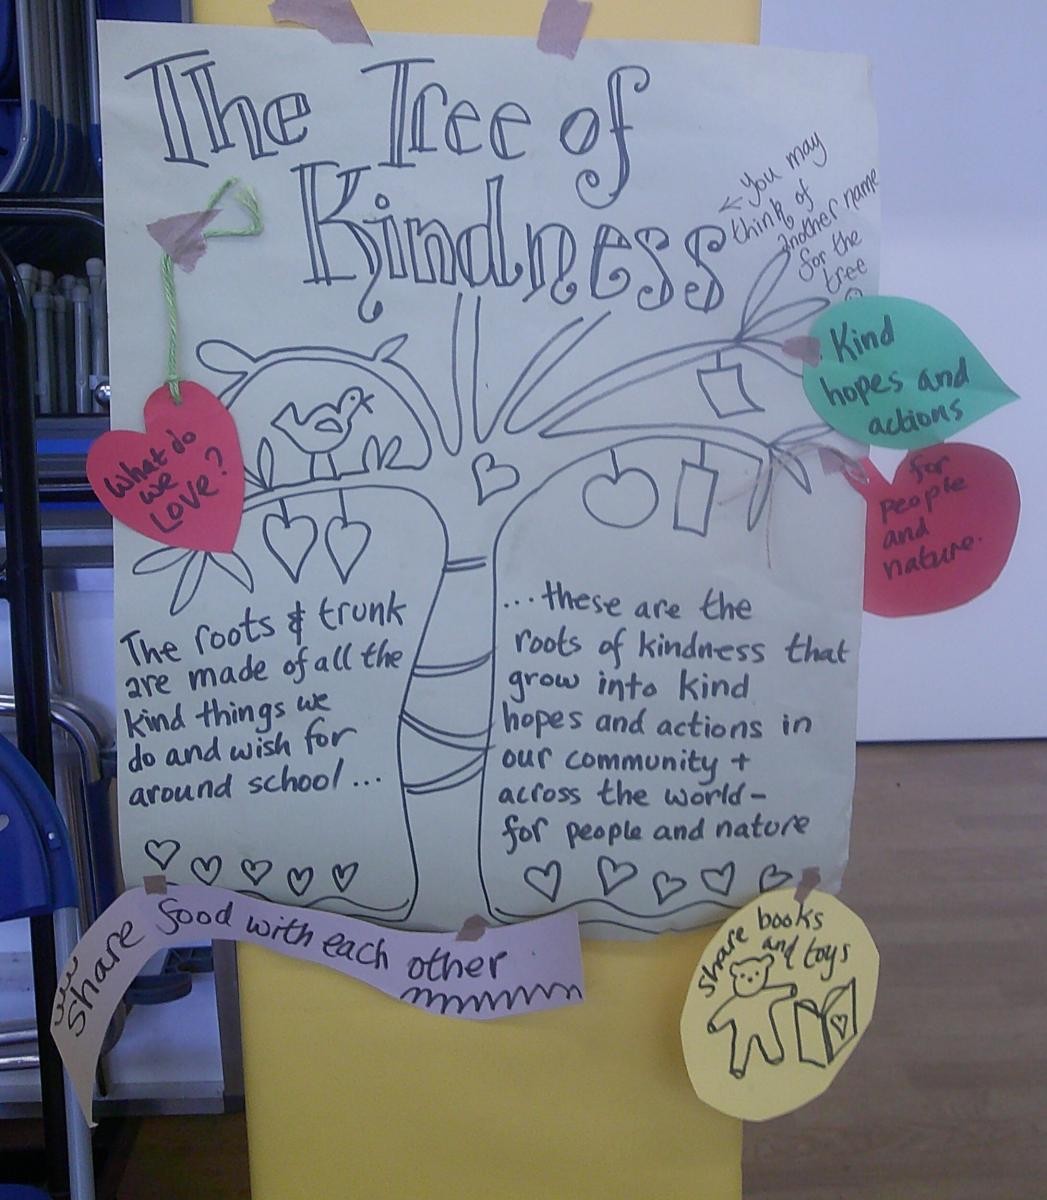 The Tree of
Kindness
← you may
think of
another name
for the
tree
Kind
hopes and
actions
for
people
and
nature.
What do
we
Love?
The roots & trunk
are made of all the
kind things we
do and wish for
around school...
...these are the
roots of kindness that
grow into kind
hopes and actions in
our community +
across the world-
for people and nature
Share food with each other
share books
and toys